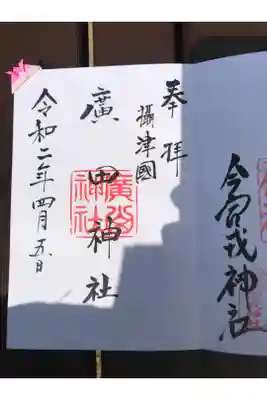 今宮戎神社
奉拝
攝津國
廣田神社
廣田
神社
令和二年四月五日